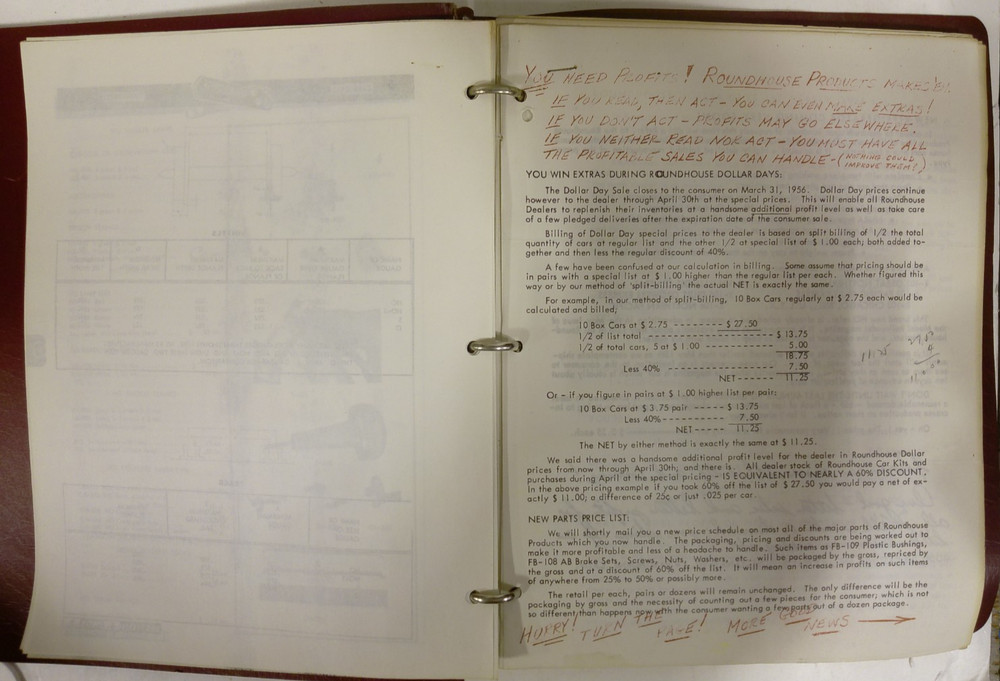 YOU NEED PROFITS! ROUNDHOUSE PRODUCTS MAKES 'EM.
IF YOU READ, THEN ACT - YOU CAN EVEN MAKE EXTRAS!
IF YOU DON'T ACT - PROFITS MAY GO ELSEWHERE.
IF YOU NEITHER READ NOR ACT - YOU MUST HAVE ALL
THE PROFITABLE SALES YOU CAN HANDLE - (NOTHING COULD IMPROVE THEM?)
YOU WIN EXTRAS DURING ROUNDHOUSE DOLLAR DAYS:
The Dollar Day Sale closes to the consumer on March 31, 1956. Dollar Day prices continue
however to the dealer through April 30th at the special prices. This will enable all Roundhouse
Dealers to replenish their inventories at a handsome additional profit level as well as take care
of a few pledged deliveries after the expiration date of the consumer sale.
Billing of Dollar Day special prices to the dealer is based on split billing of 1/2 the total
quantity of cars at regular list and the other 1/2 at special list of $ 1.00 each; both added to-
gether and then less the regular discount of 40%.
A few have been confused at our calculation in billing. Some assume that pricing should be
in pairs with a special list at $ 1.00 higher than the regular list per each. Whether figured this
way or by our method of 'split-billing' the actual NET is exactly the same.
For example, in our method of split-billing, 10 Box Cars regularly at $ 2.75 each would be
calculated and billed;
10 Box Cars at $ 2.75 --------- $ 27.50
1/2 of list total ------------------------ $ 13.75
1/2 of total cars, 5 at $ 1.00 ------------- 5.00
18.75
Less 40% -------------------- 7.50
NET ------ 11.25
Or - if you figure in pairs at $ 1.00 higher list per pair:
10 Box Cars at $ 3.75 pair ----- $ 13.75
Less 40% ------------ 7.50
NET ----- 11.25
The NET by either method is exactly the same at $ 11.25.
We said there was a handsome additional profit level for the dealer in Roundhouse Dollar
prices from now through April 30th; and there is. All dealer stock of Roundhouse Car Kits and
purchases during April at the special pricing - IS EQUIVALENT TO NEARLY A 60% DISCOUNT.
In the above pricing example if you took 60% off the list of $ 27.50 you would pay a net of ex-
actly $ 11.00; a difference of 25¢ or just .025 per car.
NEW PARTS PRICE LIST:
We will shortly mail you a new price schedule on most all of the major parts of Roundhouse
Products which you now handle. The packaging, pricing and discounts are being worked out to
make it more profitable and less of a headache to handle. Such items as FB-109 Plastic Bushings,
FB-108 AB Brake Sets, Screws, Nuts, Washers, etc. will be packaged by the gross, repriced by
the gross and at a discount of 60% off the list. It will mean an increase in profits on such items
of anywhere from 25% to 50% or possibly more.
The retail per each, pairs or dozens will remain unchanged. The only difference will be the
packaging by gross and the necessity of counting out a few pieces for the consumer; which is not
so different than happens now with the consumer wanting a few parts out of a dozen package.
HURRY! TURN THE PAGE! MORE GOOD NEWS